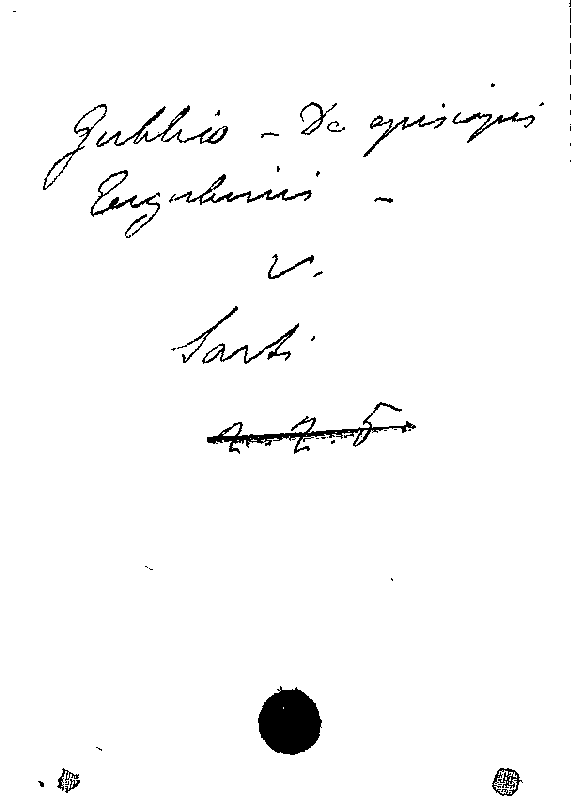 Gubbio - De episcopis
Eugubinis -
v.
Sarti
2. 2. 5.